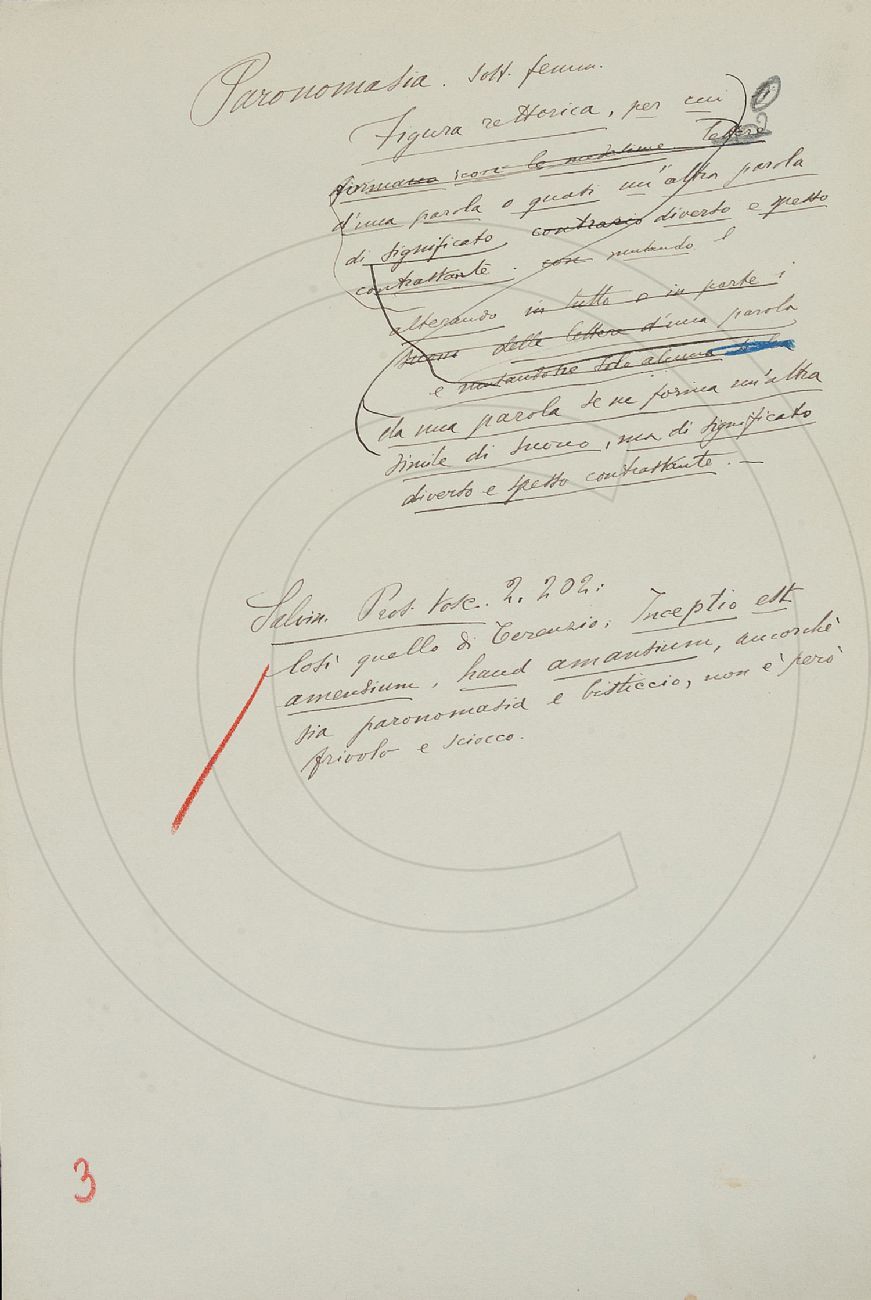 Paronomasia. Sost. femm.
Figura rettorica, per cui
formano con le medesime lettere
d'una parola o quasi un'altra parola
di significato contrario diverso e spesso
contrastante. con mutando
alterando in tutto o in parte i
suoni delle lettere d'una parola
e mutandone solo alcuna
da una parola se ne forma un'altra
simile di suono, ma di significato
diverso e spesso contrastante. —
Salvin. Pros. tosc. 2. 202:
Così quello di Terenzio: Inceptio est
amentium, haud amantium, ancorché
sia paronomasia e bisticcio, non è però
frivolo e sciocco.
3